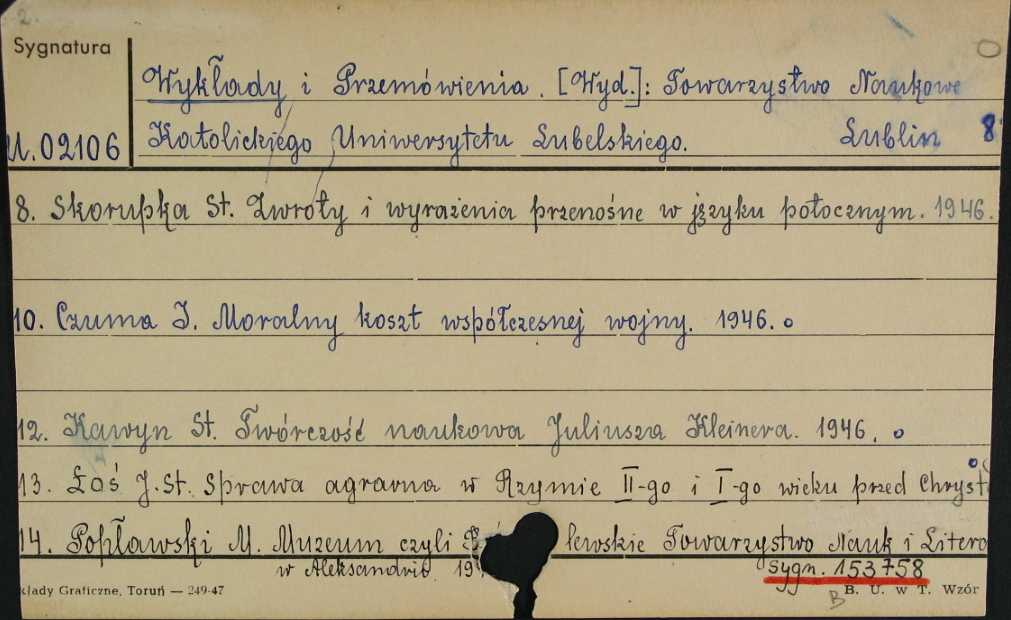 2.
Sygnatura
Wykłady i Przemówienia. [Wyd.]: Towarzystwo Naukowe
U.02106 Katolickiego Uniwersytetu Lubelskiego. Lublin 8
8. Skorupka St. Zwroty i wyrażenia przenośne w języku potocznym. 1946.
10. Czuma I. Moralny koszt współczesnej wojny. 1946.
12. Kawyn St. Twórczość naukowa Juliusza Kleinera. 1946.
13. Łoś J. St. Sprawa agrarna w Rzymie II-go i I-go wieku przed Chryst
14. Popławski M. Muzeum czyli lewskie Towarzystwo Nauk i Litera
w Aleksandrii. 19 Sygn. 153758
kłady Graficzne, Toruń — 249-47 B B. U. w T. Wzór